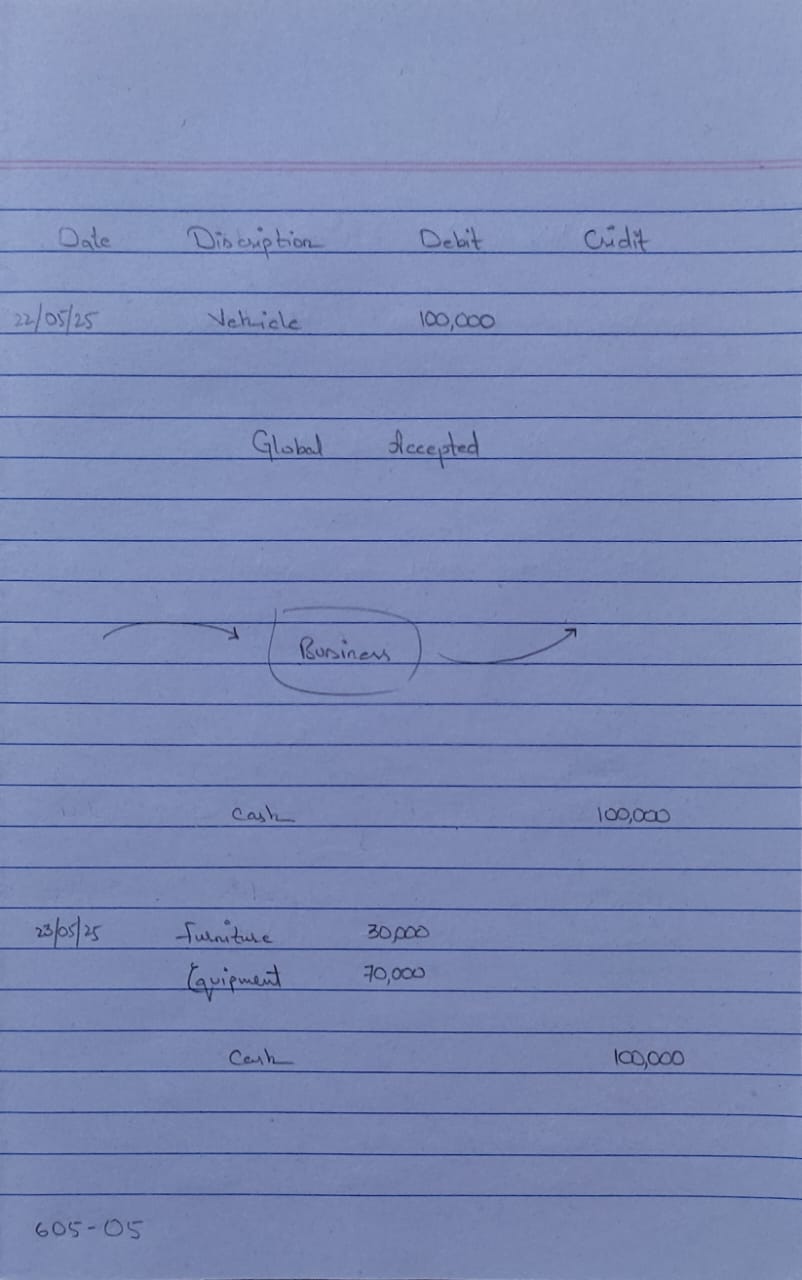 Date Discription Debit Cridit
22/05/25 Vehicle 100,000
Global Accepted
Business
Cash 100,000
23/05/25 Furniture 30,000
Equipment 70,000
Cash 100,000
605-05